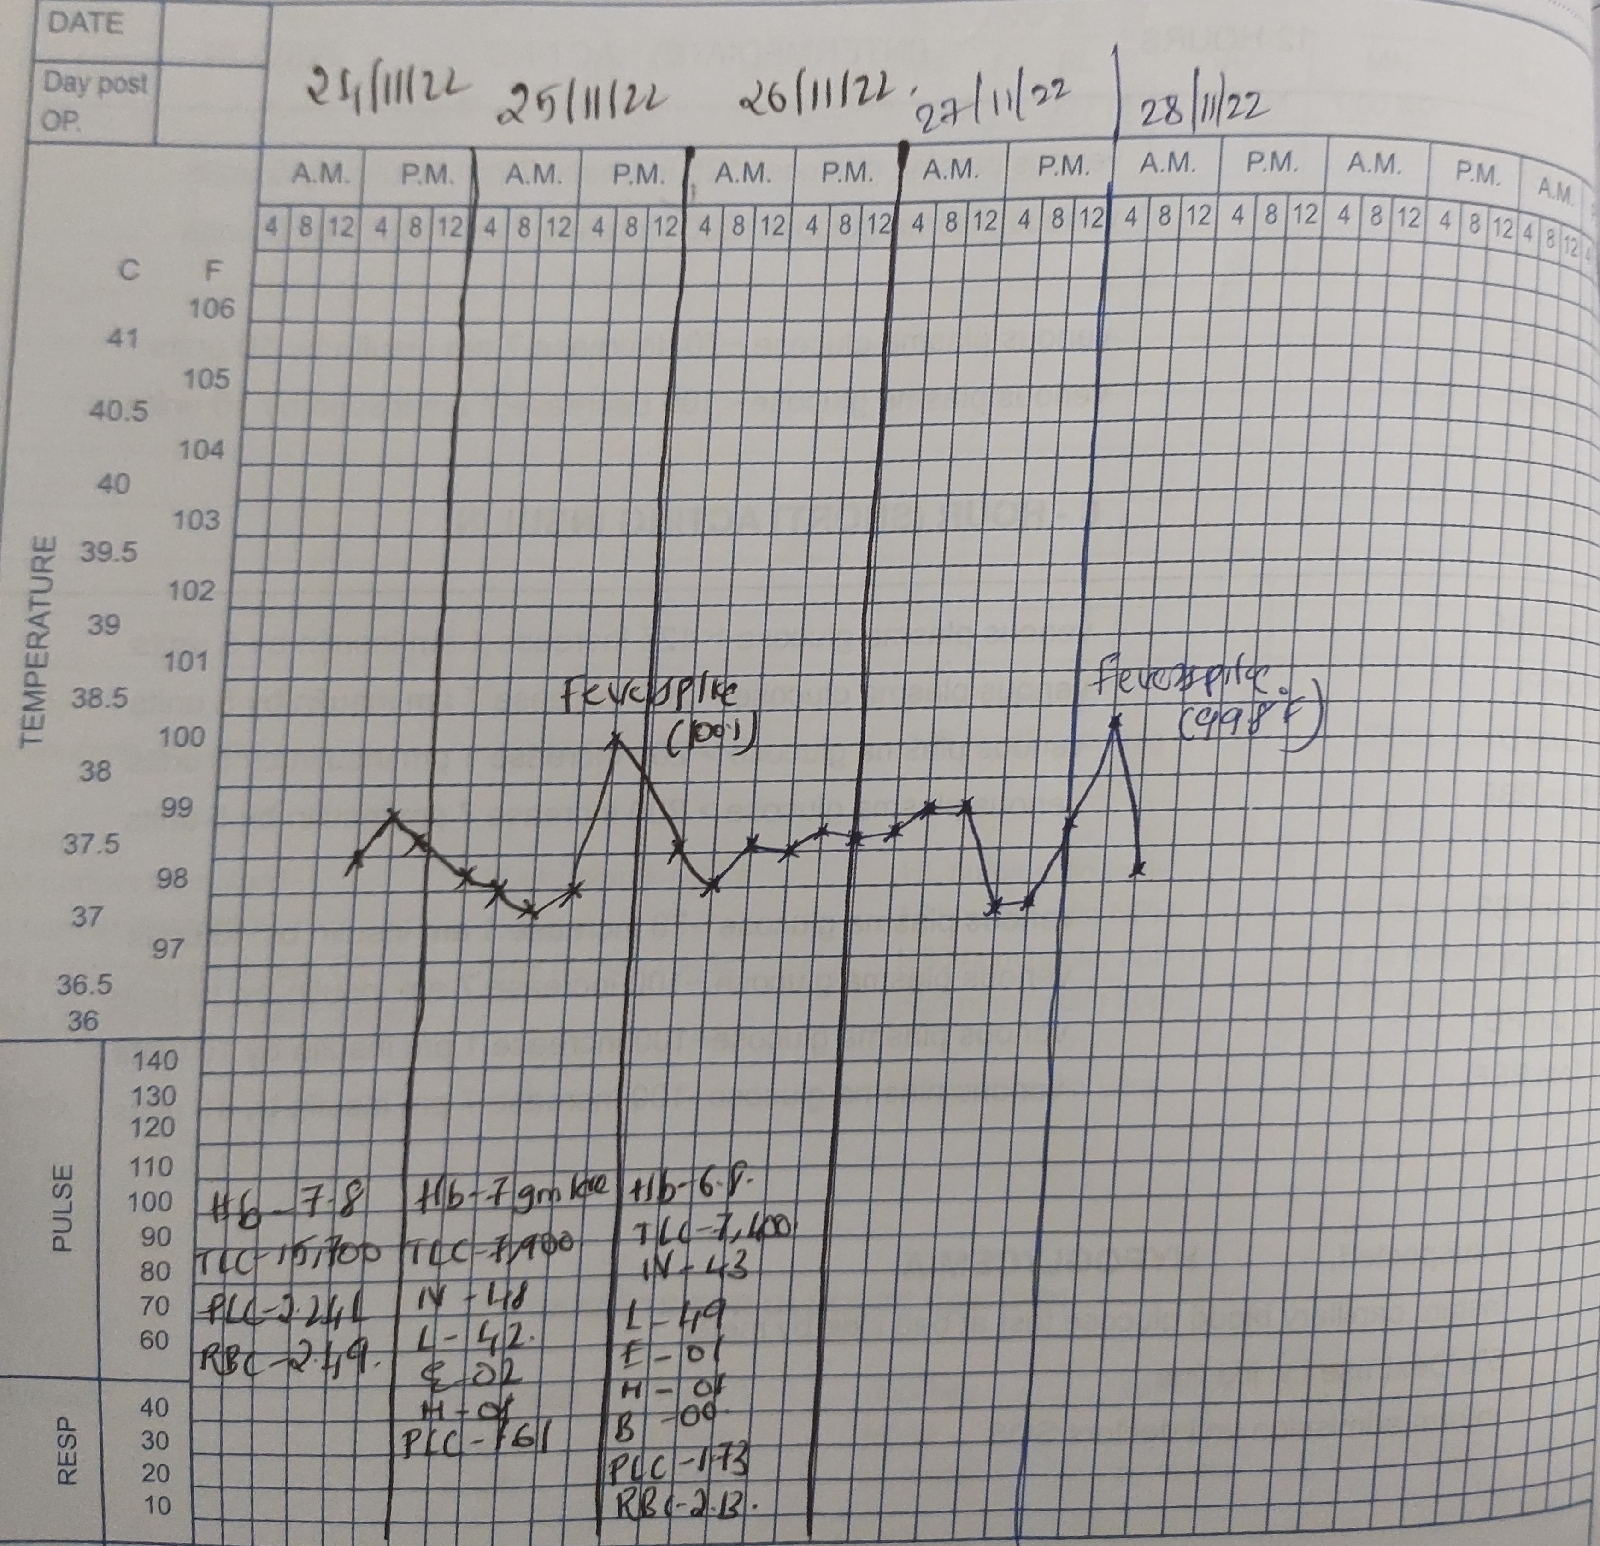 DATE
Day post
OP.
24/11/22 25/11/22 26/11/22 27/11/22 28/11/22
A.M. P.M. A.M. P.M. A.M. P.M. A.M. P.M. A.M. P.M. A.M. P.M. A.M.
4 8 12 4 8 12 4 8 12 4 8 12 4 8 12 4 8 12 4 8 12 4 8 12 4 8 12 4 8 12 4 8 12 4 8 12 4 8 12 4
C F
106
41
105
40.5
104
40
103
39.5
102
39
101
38.5
100
38
99
37.5
98
37
97
36.5
36
TEMPERATURE
Fever spike
(100.1)
Fever spike.
(99.8°F)
PULSE
140
130
120
110
100
90
80
70
60
RESP
40
30
20
10
Hb - 7.8
TLC - 15,700
PLC - 2.24L
RBC - 2.49.
Hb - 7 gm
TLC - 7,900
N - 48
L - 42.
E - 02
M - 01
PLC - 161
Hb - 6.8.
TLC - 7,400
N - 43
L - 49
E - 01
M - 01
B - 00
PLC - 1.73
RBC - 2.13.